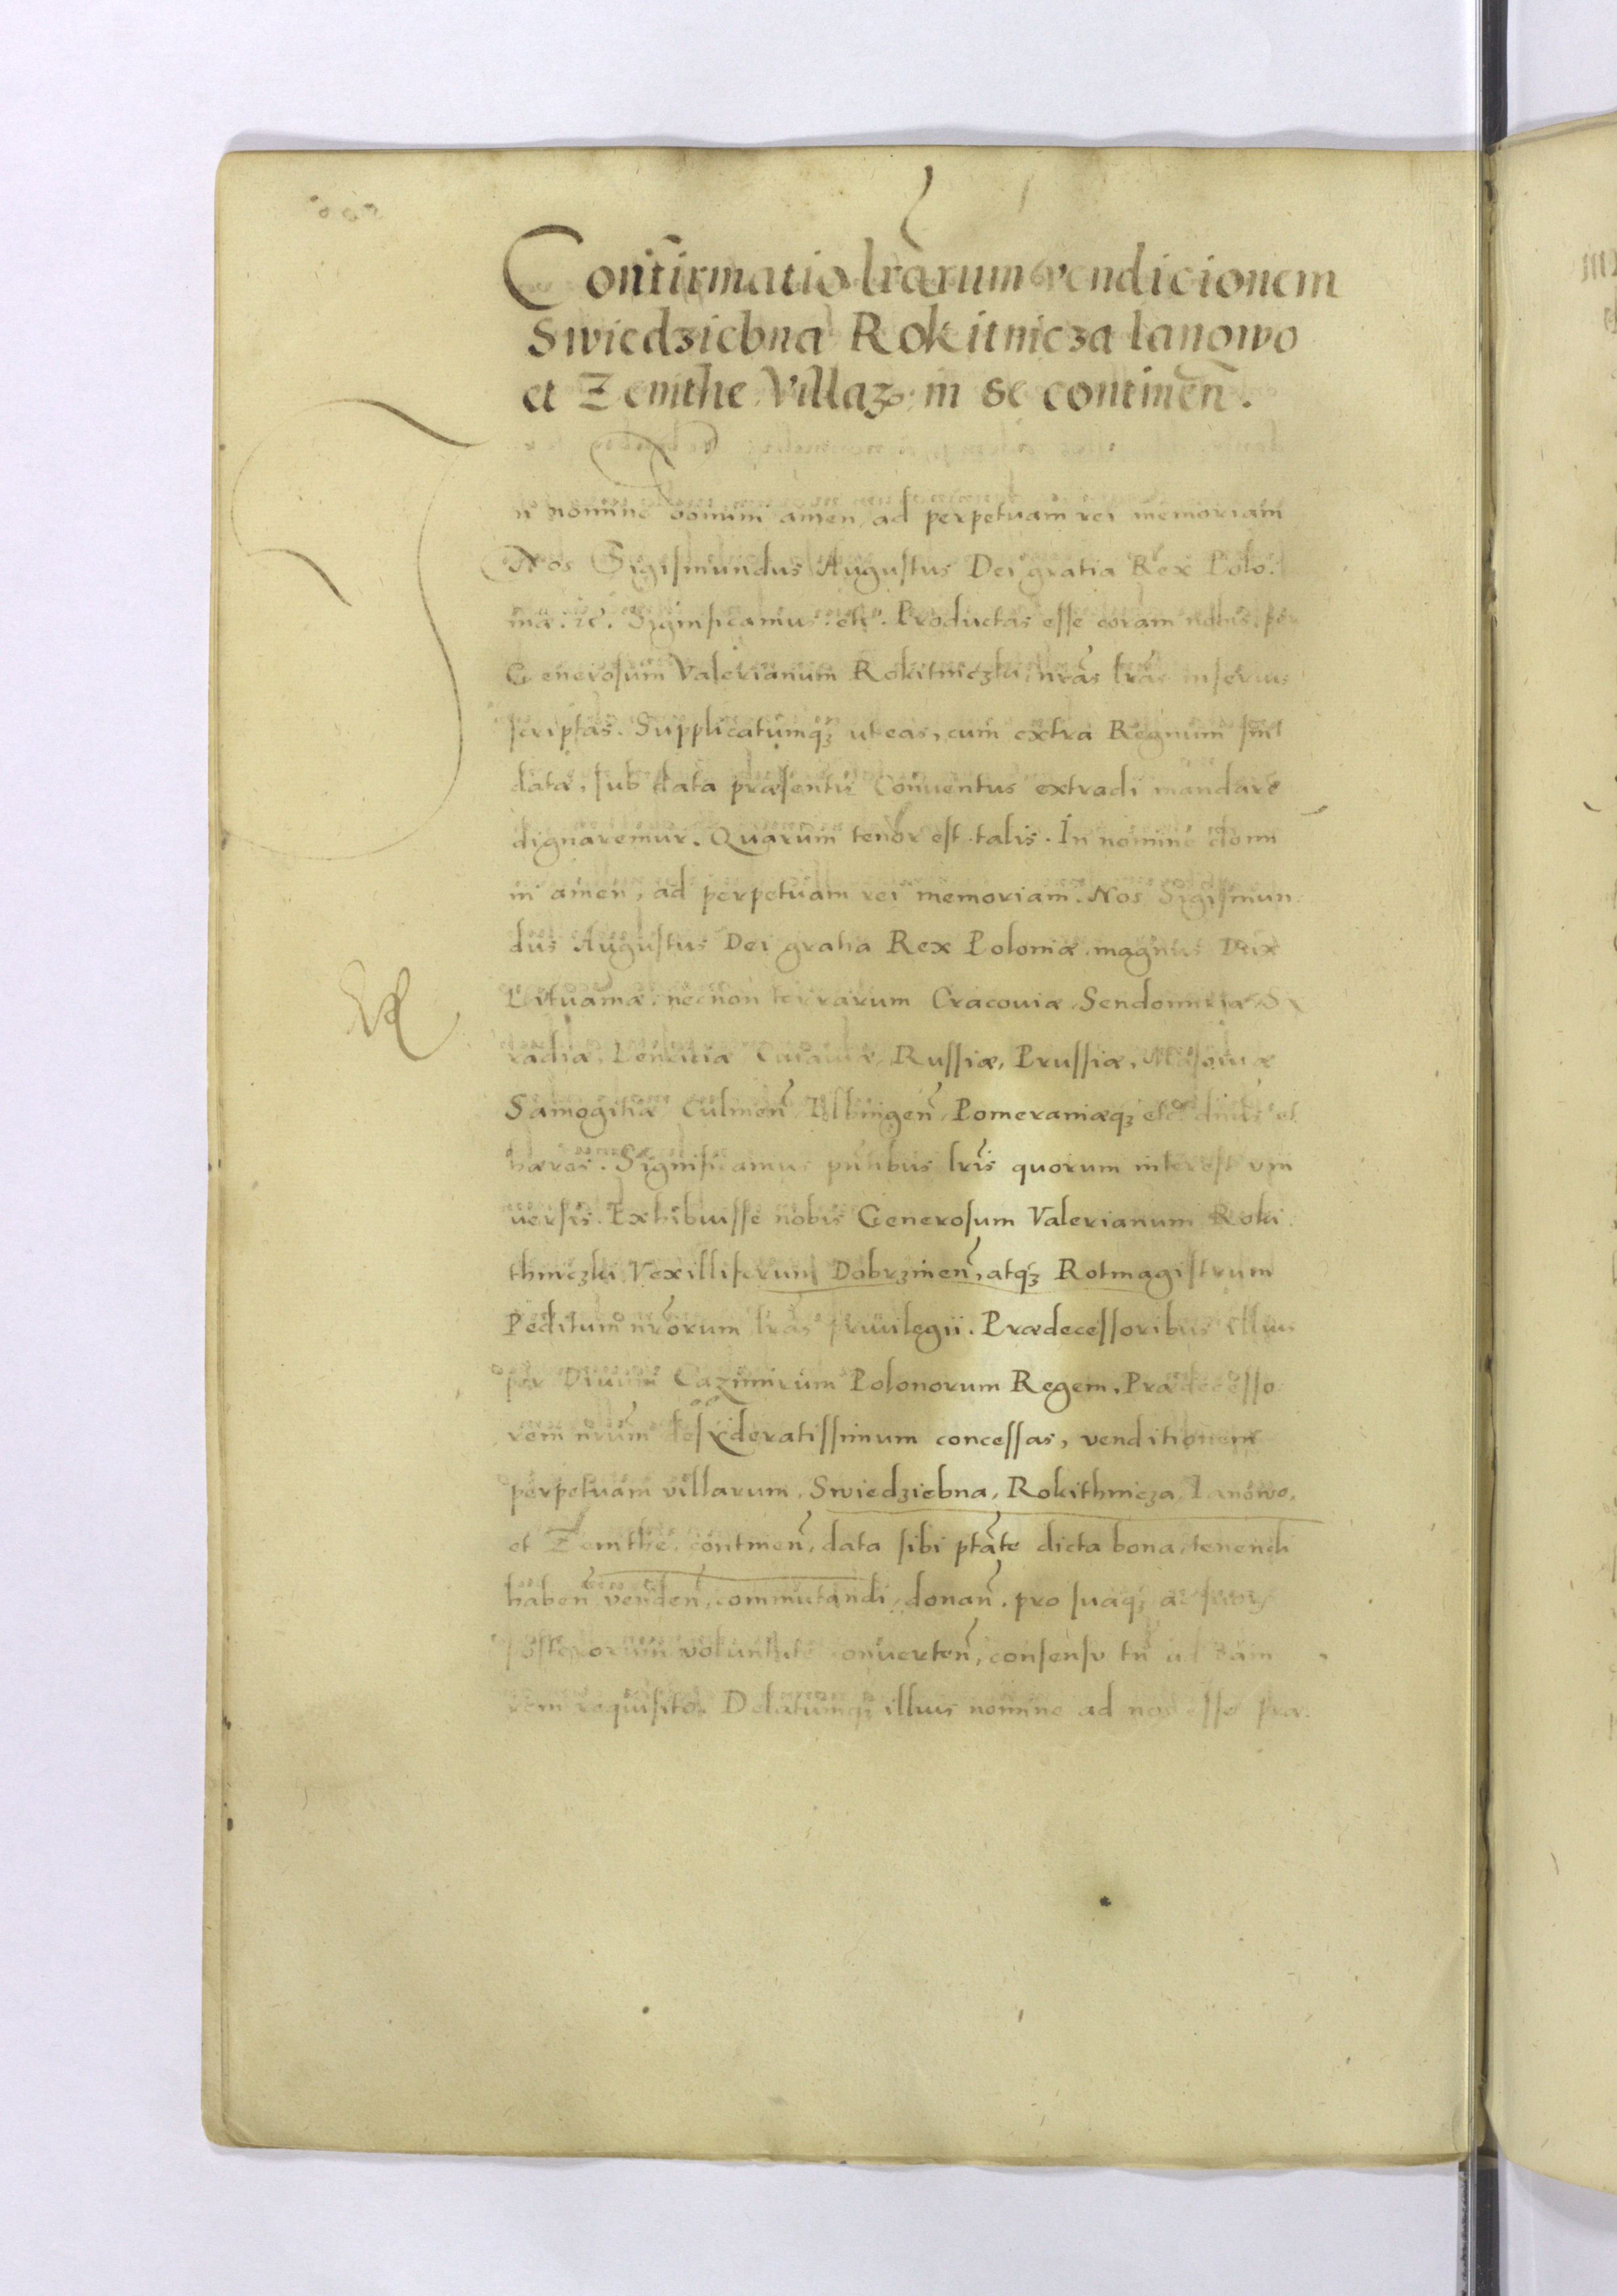 Confirmatio lrarum vendicionem
Swiedziebna Rokitnicza Ianowo
et Zemthe Villaꝝ in se continen̄.
In nomine domini amen, ad perpetuam rei memoriam
Nos Sigismundus Augustus Dei gratia Rex Polo-
niæ. ꝛc. Significamus. etc. Productas esse coram nobis per
Generosum Valerianum Rokitniczki, nr̄as lr̄as inferius
scriptas. Supplicatumqꝫ ut eas, cum extra Regnum sint
datæ, sub data præsentis Conventus extradi mandare
dignaremur. Quarum tenor est talis. In nomine domi
ni amen, ad perpetuam rei memoriam. Nos Sigismun
dus Augustus Dei gratia Rex Poloniæ magnus Dux
Lituaniæ, necnon terrarum Cracoviæ Sendomiriæ Si
radiæ Lenciciæ Cuiaviæ Russiæ, Prussiæ, Masoviæ
Samogitiæ Culmen̄ Elbingen̄ Pomeraniæqꝫ etc dnus et
hæres. Significamus pn̄tibus lr̄is quorum interest vni
versis. Exhibuisse nobis Generosum Valerianum Roki
thniczki Vexilliferum Dobrzinen̄, atqꝫ Rotmagistrum
Peditum nr̄orum lr̄as privilegii. Prædecessoribus illius
per Divum Cazimirum Polonorum Regem, Prædecesso
rem nr̄um desyderatissimum concessas, venditionem
perpetuam villarum, Swiedziebna, Rokithnicza, Ianowo,
et Zemthe, continen̄, data sibi pt̄ate dicta bona, tenendi
haben̄ venden̄, commutandi, donan̄. pro suaqꝫ ac suorꝫ
posterorum voluntate converten̄, consensu tn̄ ad eam
rem requisito. Delatumqꝫ illius nomine ad nos esse præ-